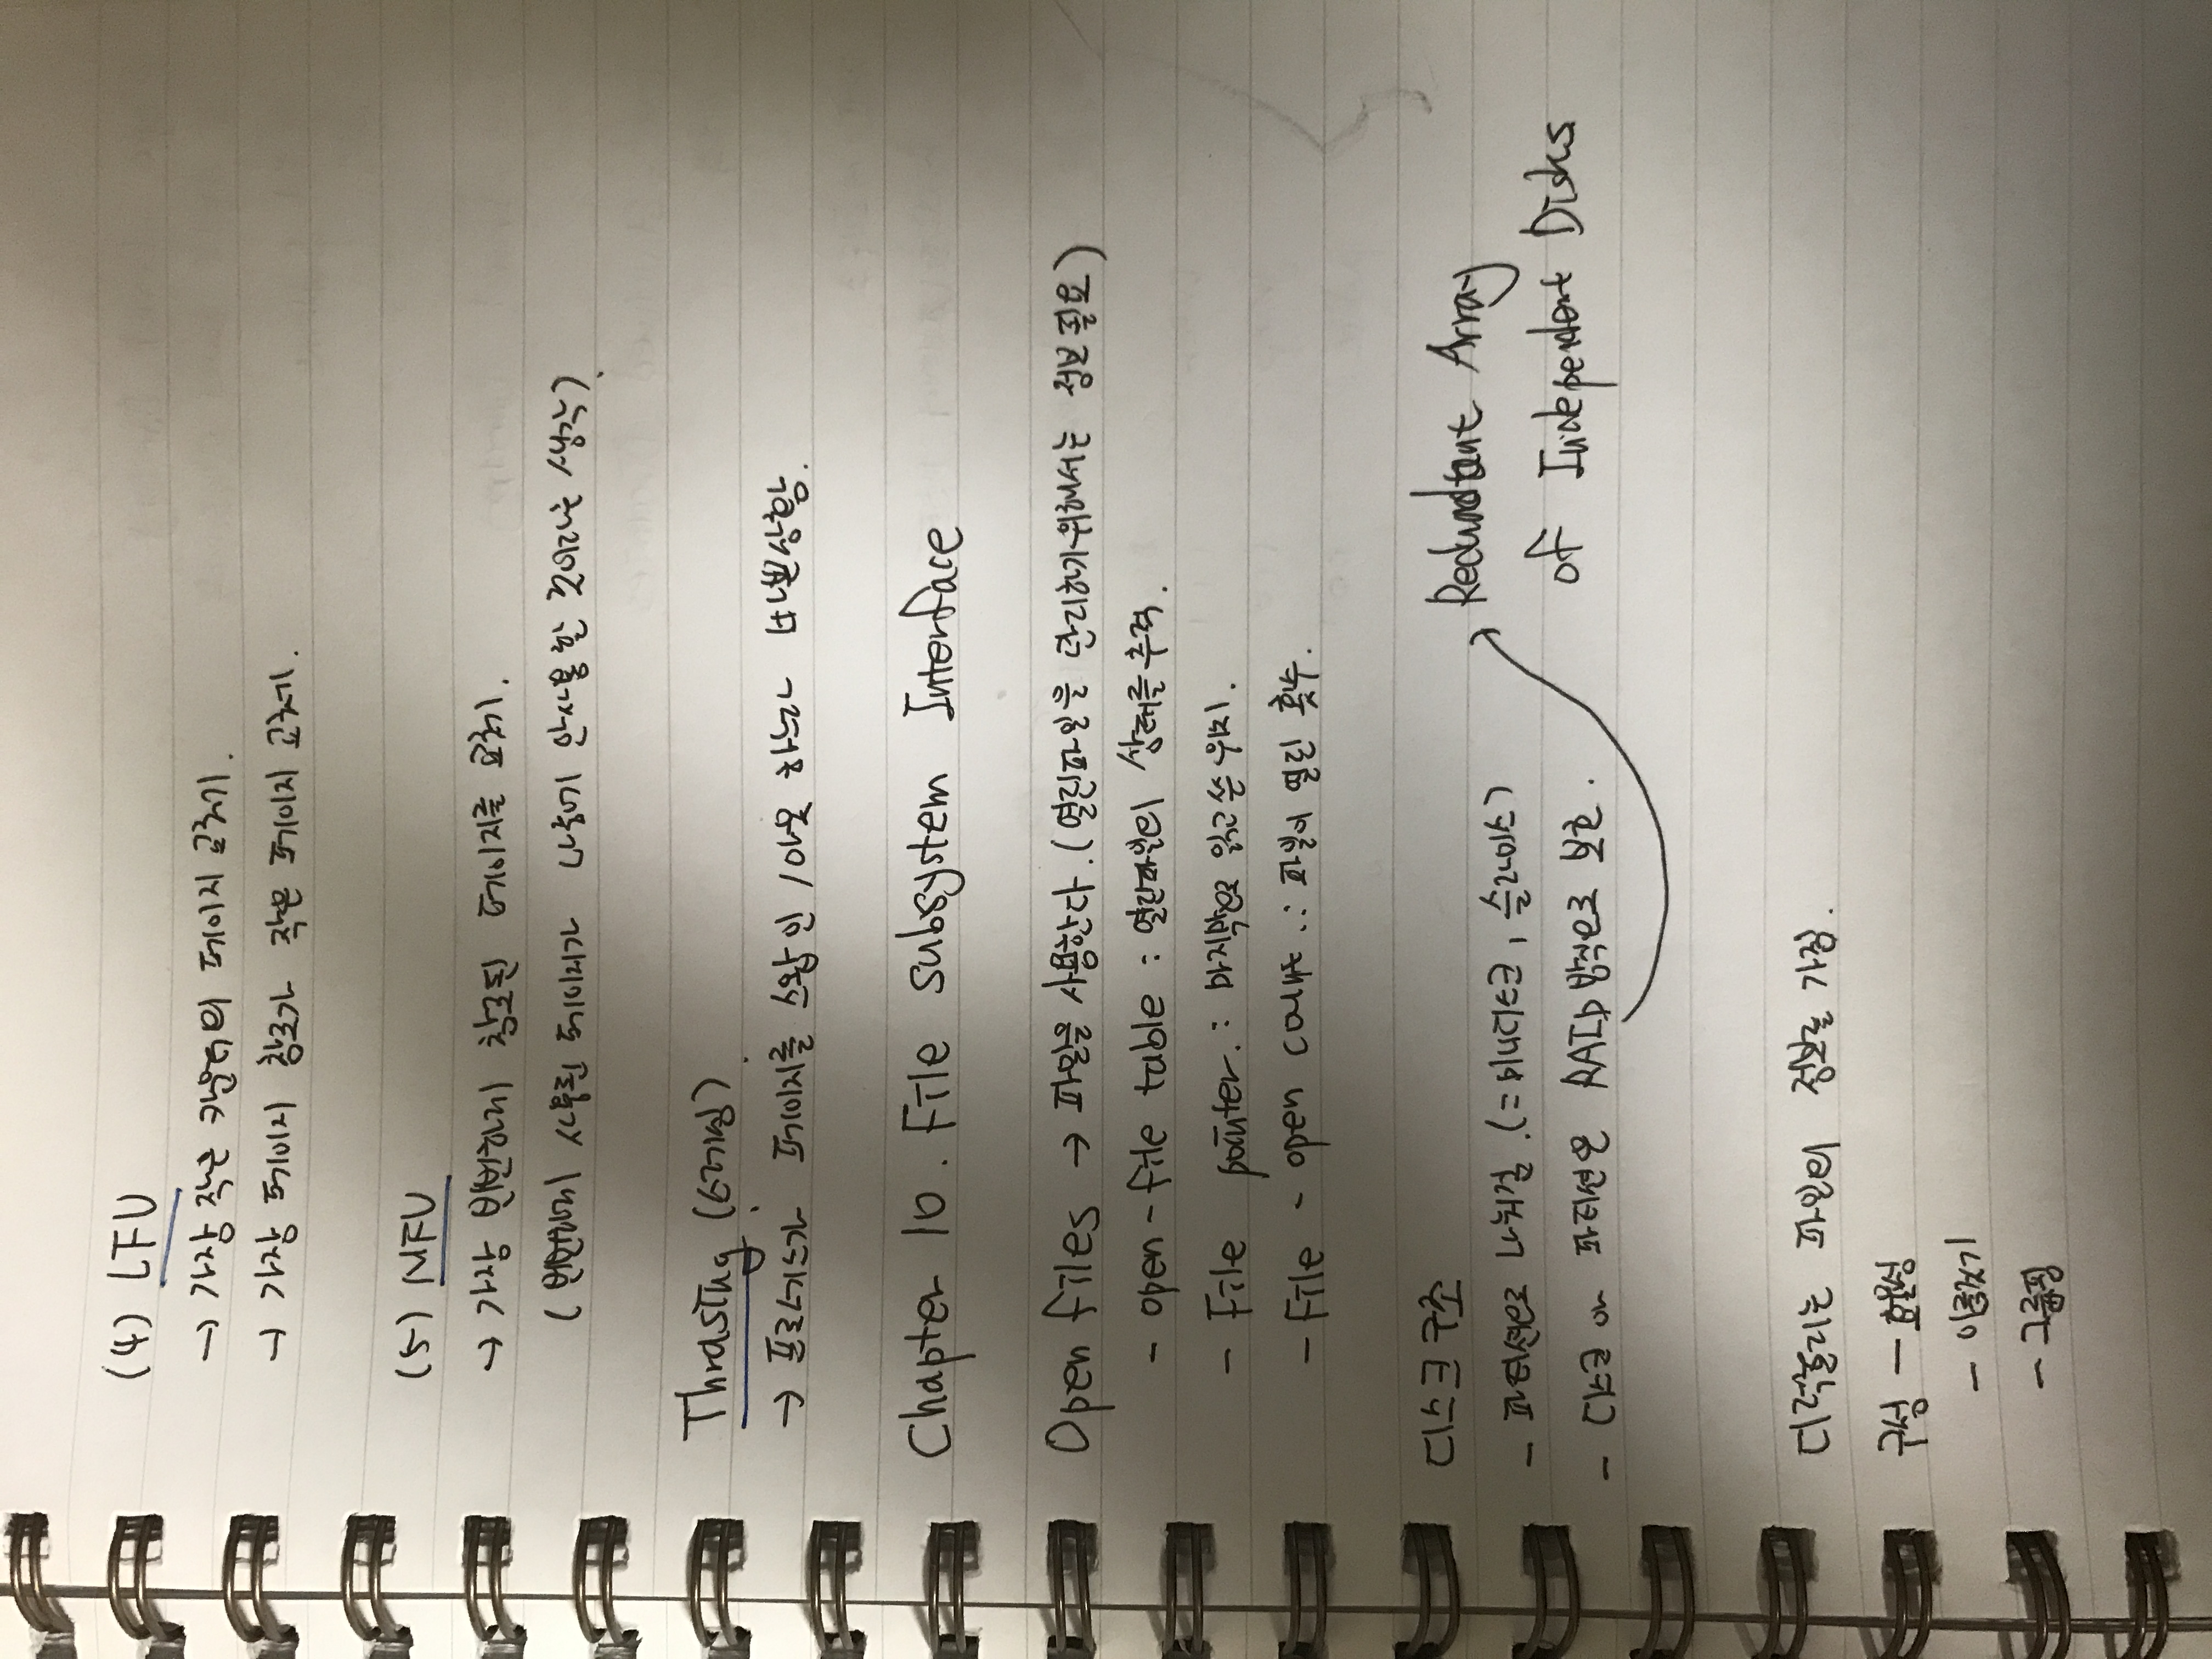 (4) LFU
→ 가장 작은 카운터의 페이지 교체.
→ 가장 페이지 참조가 작은 페이지 교체.
(5) MFU
→ 가장 빈번하게 참조된 페이지를 교체.
(빈번하게 사용된 페이지가 나중에 안사용할 것이라는 생각).
Thrasing (스레싱).
→ 프로세스가 페이지를 스왑인/아웃 하느라 바쁜상황.
Chapter 10. File subsystem Interface
Open files → 파일을 사용한다. (열린파일을 관리하기위해서는 정보 필요)
- open-file table : 열린파일의 상태를 추적.
- File pointer. : 마지막으로 읽고 쓴 위치.
- File - open count .: 파일이 열린 횟수.
디스크 구조
- 파티션으로 나눠짐. (= 미니디스크, 슬라이스)
- 디스크 or 파티션은 RAID 방식으로 보호.
Redundtant Array
of Independent Disks
디렉출리는 파일의 정보를 가짐.
구성 - 효율성
- 이름짓기
- 그룹핑